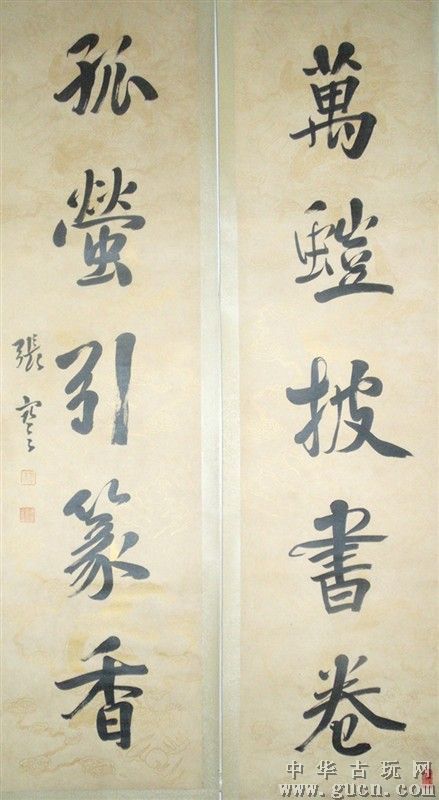 萬螘披書卷
孤螢引篆香
張謇
中华古玩网
www.gucn.com